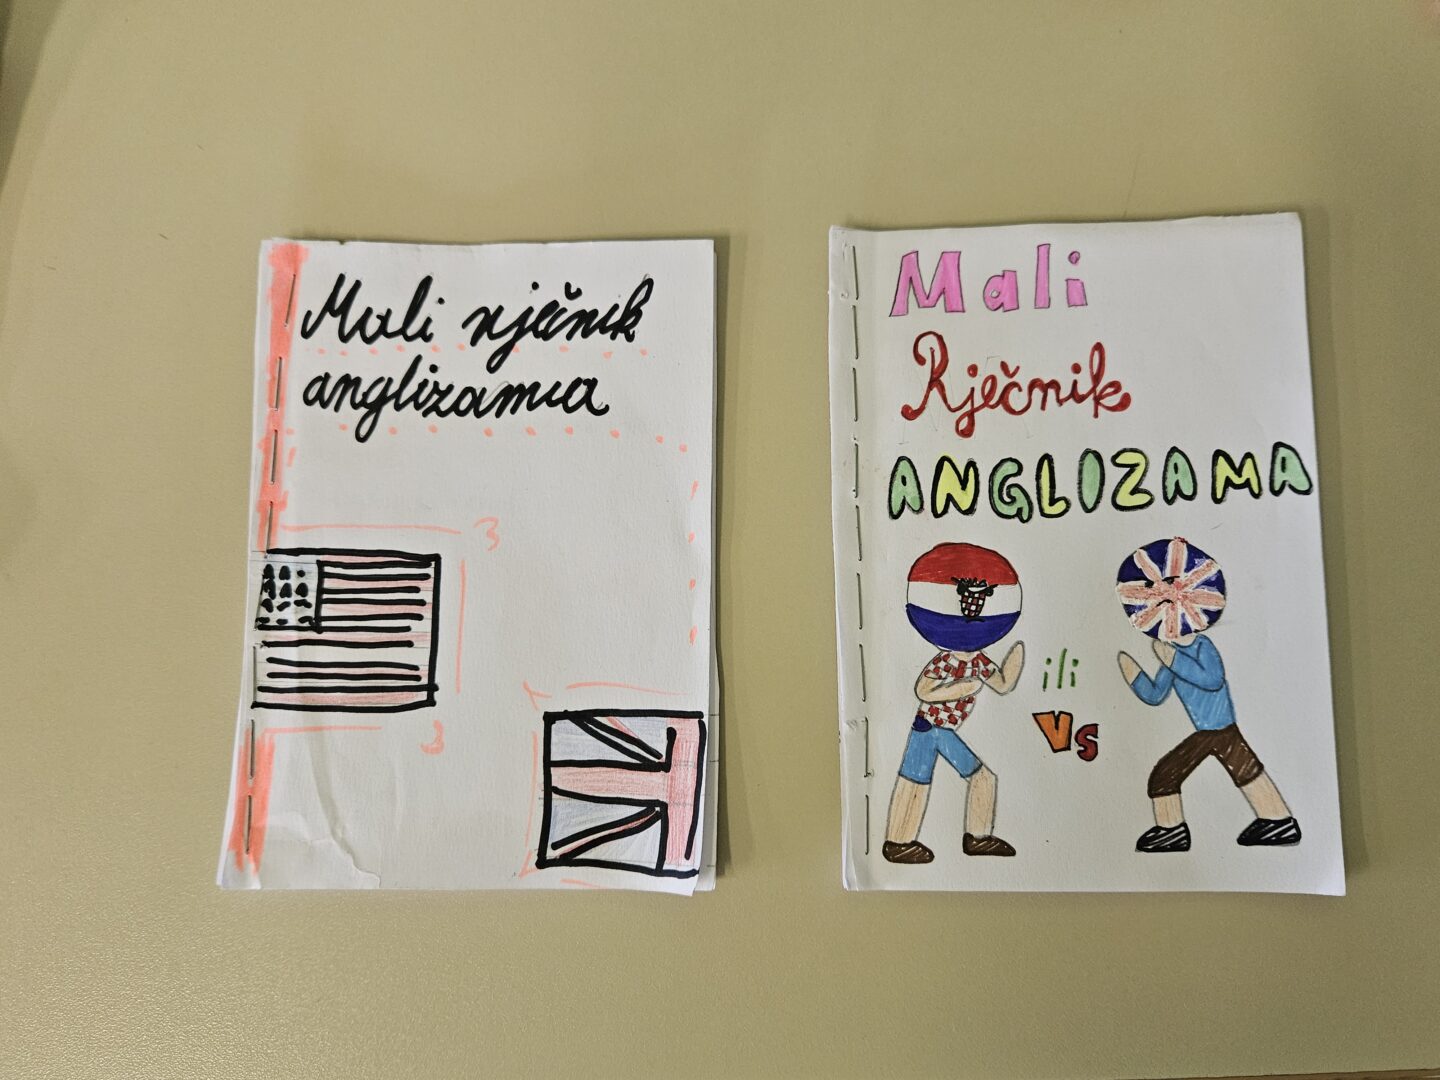 Mali rječnik
anglizama
3
3
Mali
Rječnik
ANGLIZAMA
ili
vs